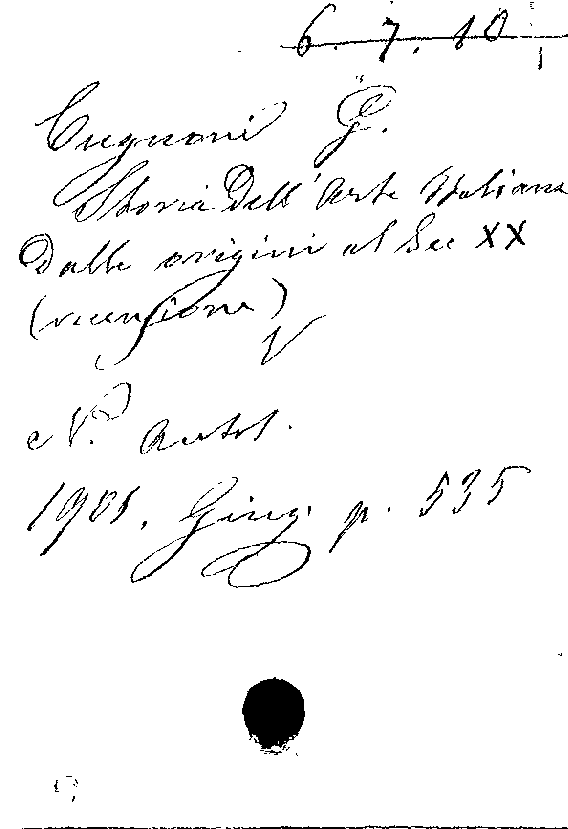 6. 7. 10
Cugnoni G.
Storia Dell' Arte Italiana
Dalle origini al Sec XX
(recensione)
N. Antol.
1901. Giug. p. 535